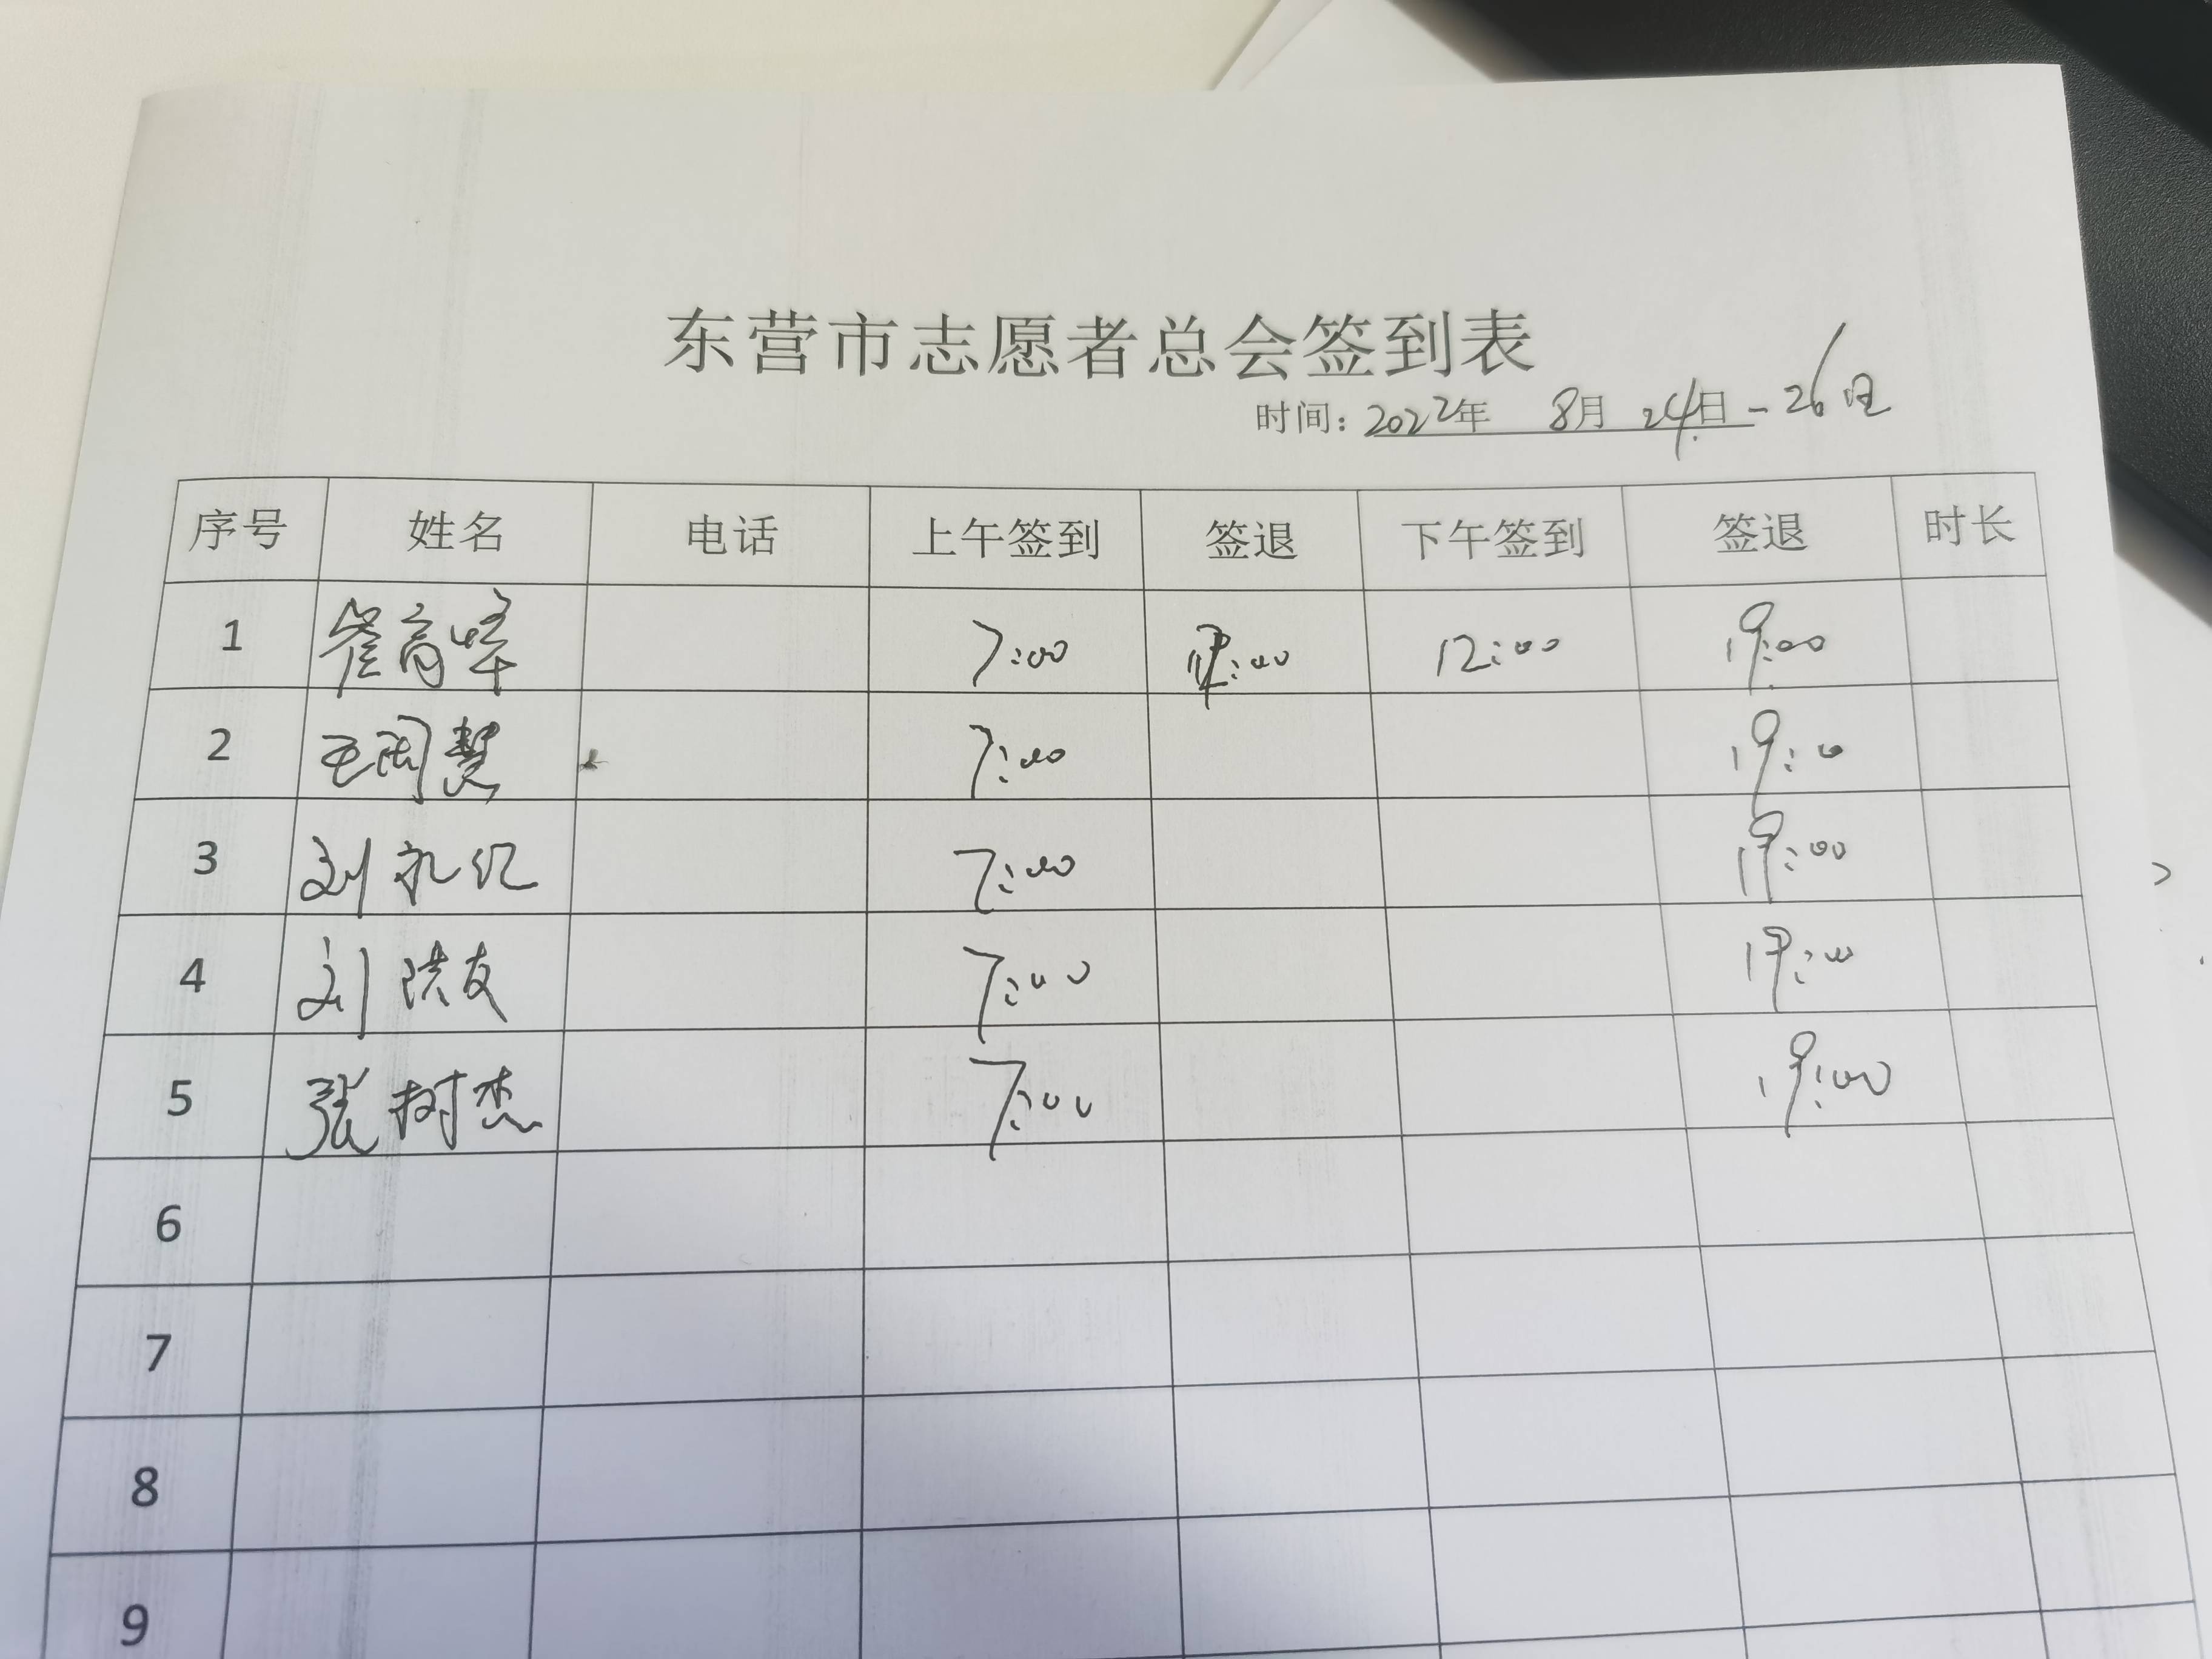 东营市志愿者总会签到表
时间: 2022年 8月 24日-26日
序号 姓名 电话 上午签到 签退 下午签到 签退 时长
1 崔育峰 7:00 12:00 19:00
2 王 慧 7:00 19:00
3 刘礼纪 7:00 19:00
4 刘洪友 7:00 19:00
5 张树杰 7:00 19:00
6
7
8
9